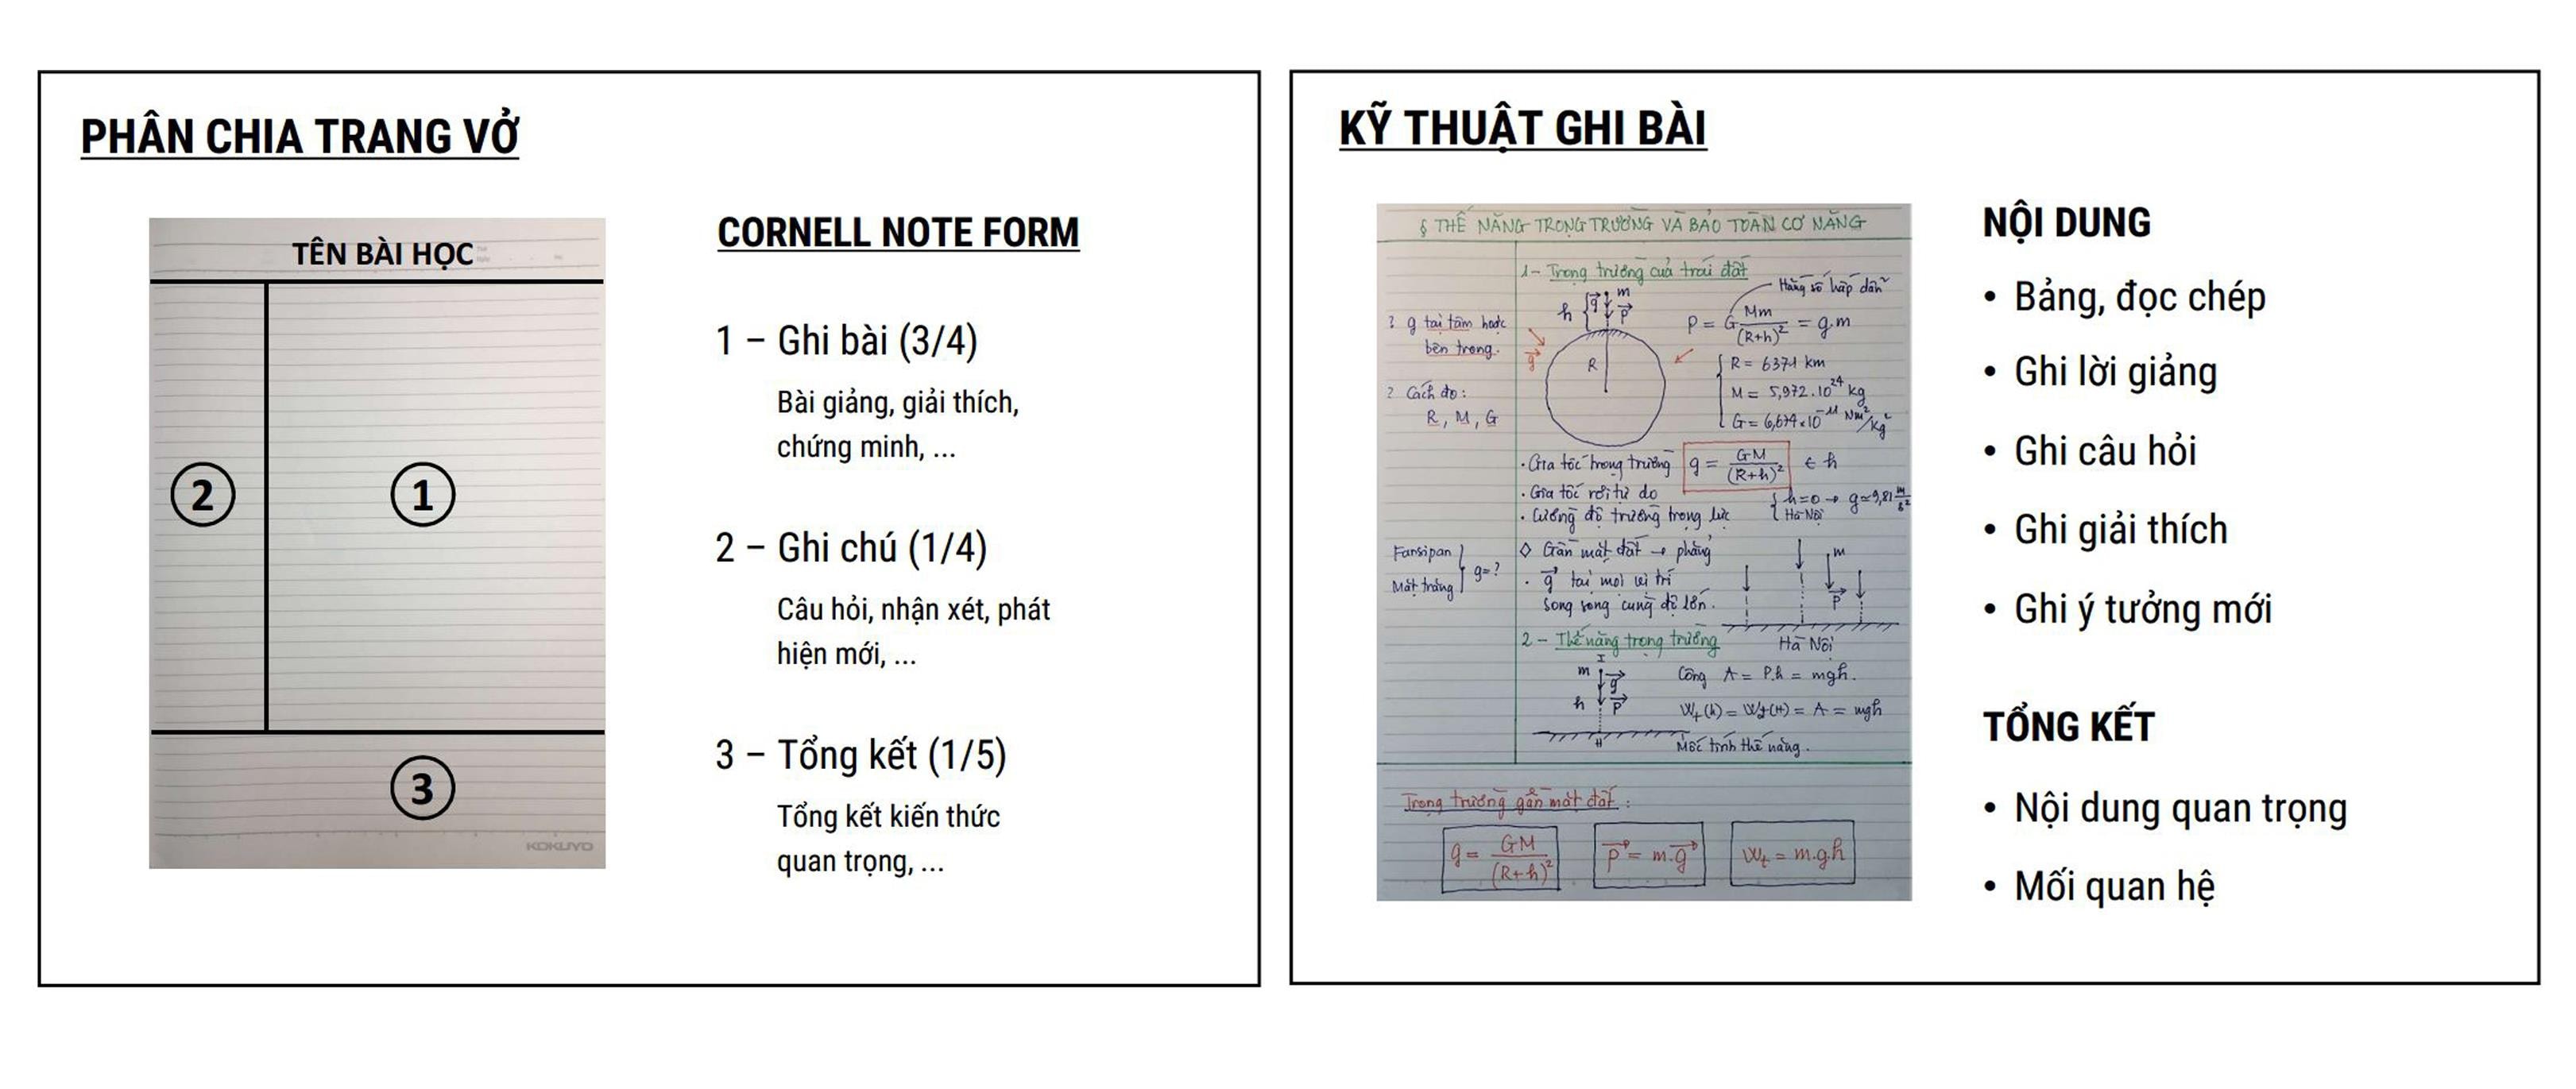 PHÂN CHIA TRANG VỞ
TÊN BÀI HỌC
2
1
3
KOKUYO
CORNELL NOTE FORM
1 – Ghi bài (3/4)
Bài giảng, giải thích,
chứng minh, ...
2 – Ghi chú (1/4)
Câu hỏi, nhận xét, phát
hiện mới, ...
3 – Tổng kết (1/5)
Tổng kết kiến thức
quan trọng, ...
KỸ THUẬT GHI BÀI
§ THẾ NĂNG TRỌNG TRƯỜNG VÀ BẢO TOÀN CƠ NĂNG
1- Trọng trường của trái đất
Hằng số hấp dẫn
h { g m P
P = G Mm/(R+h)² = g.m
? g tại tâm hoặc
bên trong.
g
R
R = 6371 km
M = 5,972.10²⁴ kg
G = 6,674×10⁻¹¹ Nm²/kg²
? Cách đo:
R, M, G
• Gia tốc trọng trường g = GM/(R+h)² ∈ h
• Gia tốc rơi tự do
h=0 → g≃9,81 m/s²
Hà Nội
• Cường độ trường trọng lực
Fansipan
Mặt trăng } g=?
◇ Gần mặt đất → phẳng
• g tại mọi vị trí
song song cùng độ lớn.
m
P
Hà Nội
2 - Thế năng trọng trường
I
m
g
h
P
H
Công A = P.h = mgh.
Wt(h) = Wt(H) = A = mgh
Mốc tính thế năng.
Trọng trường gần mặt đất:
g = GM/(R+h)²
P = m.g
Wt = m.g.h
NỘI DUNG
• Bảng, đọc chép
• Ghi lời giảng
• Ghi câu hỏi
• Ghi giải thích
• Ghi ý tưởng mới
TỔNG KẾT
• Nội dung quan trọng
• Mối quan hệ